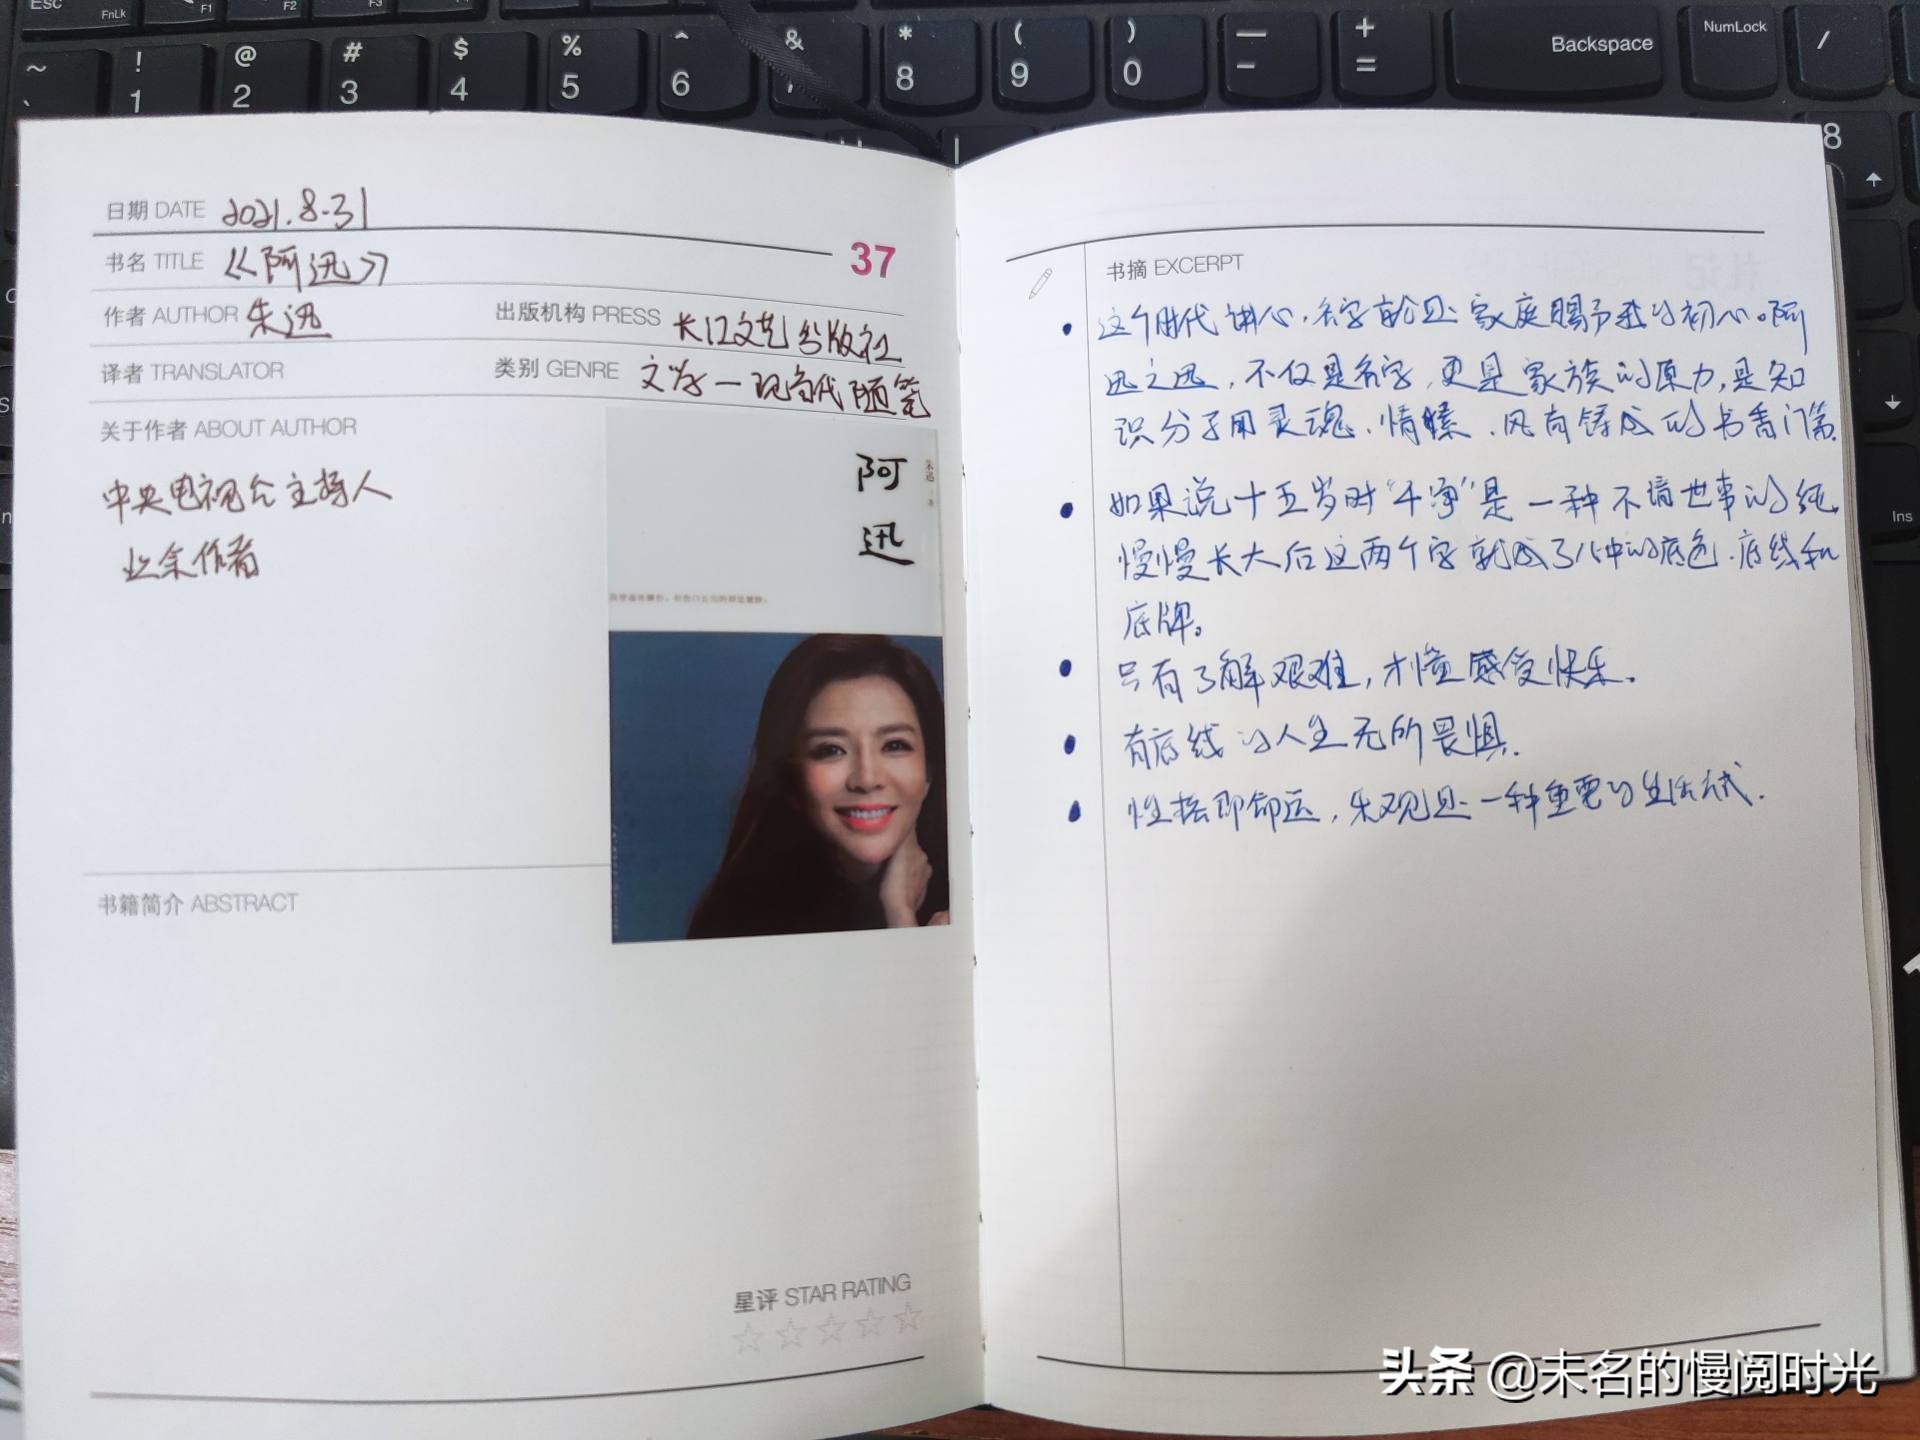 Esc
FnLk
F1
F2
F3
~
!
@
#
$
%
^
&
*
(
)
—
+
Backspace
NumLock
/
1
2
3
4
5
6
8
9
0
-
=
8
Ins
日期 DATE 2021.8.31
37
书名 TITLE 《阿迅》
作者 AUTHOR 朱迅
出版机构 PRESS 长江文艺出版社
译者 TRANSLATOR
类别 GENRE 文学—现当代随笔
关于作者 ABOUT AUTHOR
中央电视台主持人
业余作者
阿
迅
朱迅
书籍简介 ABSTRACT
星评 STAR RATING
书摘 EXCERPT
• 这个时代讲心,名字就是家庭赐予我的初心。阿
迅之迅,不仅是名字,更是家族的原力,是知
识分子用灵魂、情愫、风骨铸成的书香门第.
• 如果说十五岁时“干净”是一种不谙世事的纯,
慢慢长大后这两个字就成了心中的底色、底线和
底牌。
• 只有了解艰难,才懂感受快乐.
• 有底线的人生无所畏惧.
• 性格即命运,乐观是一种重要的生活方式.
头条 @未名的慢阅时光